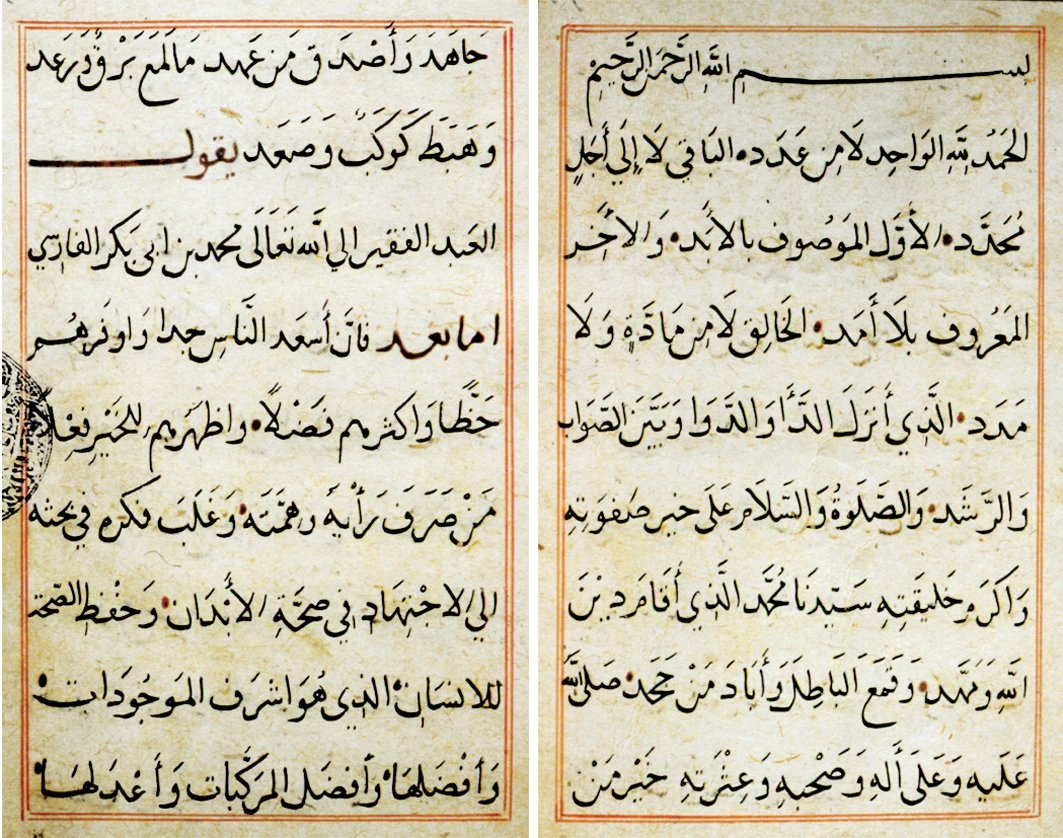 بسم الله الرحمن الرحيم
الحَمْدُ لِلَّهِ الوَاحِدِ لَا مِن عَدَدٍ البَاقِي لَا إِلَي أَجَلٍ
مُحَدَّد الأَوَّلِ المَوْصُوف بالأَبَدِ وَالأَخَر
المَعْرُوف بلَا أَمَد الخَالِقِ لَا مِن مَادَّةٍ وَلَا
مَدَد الَّذِي أَنزَلَ الدَّأَ وَالدَّوَا وَبَيَّنَ الصَّوَاب
وَالرَّشَد وَالصَّلَوةُ وَالسَّلَام عَلَى خيرِ صَفوَتِهِ
وَاكرَمِ خَلِيقَتِهِ سَيّدِنَا مُحَمَّد الَّذِي أَقَامَ دِيْنَ
اللَّهِ وَمَهَّد وَقَمَعَ البَاطِلَ وَأَبَادَ مَنْ جَحَد صَلى اللَّه
عَلَيهِ وَعَلَى أَلهِ وَصَحْبهِ وَعِتْرَتِهِ خَيْرِ مَنْ
جَاهَدَ وَأَصْدَق مَن عَهِد مَا لَمَعَ بَرْقٌ وَرَعَد
وَهَبَطَ كَوكَبٌ وَصَعَد يقول
العَبد الفقير الي اللَّه تَعَالَى محمد بن ابى بَكر الفارسي
اما بعد فانَّ أسعَد النَّاسِ جدا وَاوفَرهُم
حَظًّا وَاكثرهم فَضْلاً واظهَرهم للخَيْرِ فِعْلا
مَنْ صَرَفَ رَأْيَهُ وَهمَّتَه وَغَلَبَ فكره في بحثه
الي الاجْتِهَادِ في صحَّةِ الأَبْدَان وَحَفْظِ الصّحة
للانسَان الذي هُوَ اشرَف المَوجُودَات
وَأَفْضَلهَا وَأَفضَل المرَكَّبَات وَأَعْدَلهَا